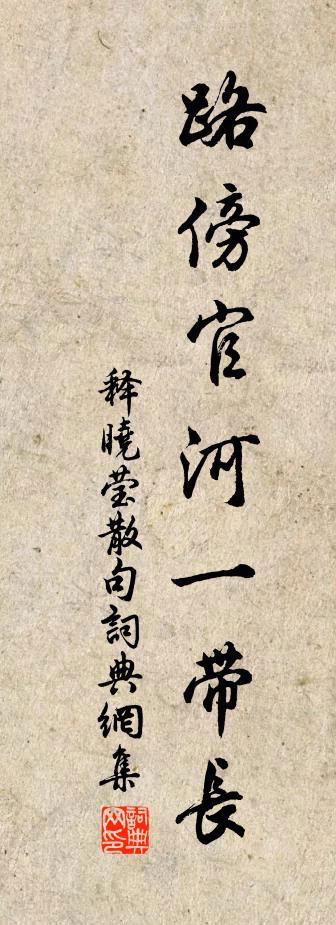 路傍官河一带長
释曉莹散句詞典網集
詞典網印